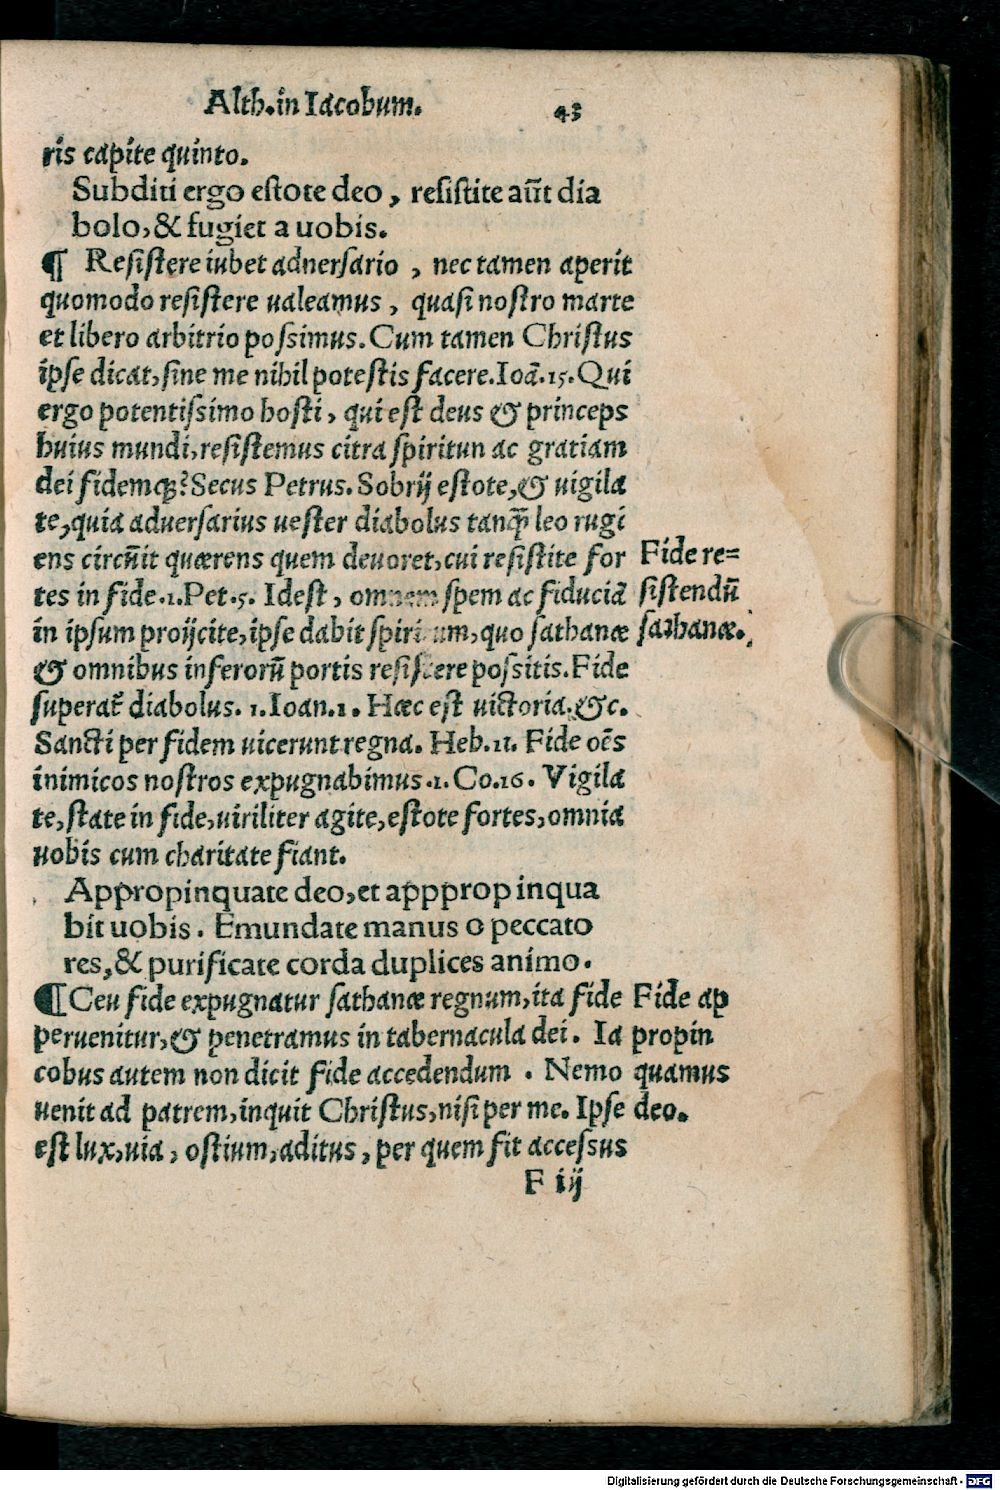 Alth.in Iacobum. 43
ris capite quinto.
Subditi ergo estote deo, resistite aūt dia
bolo, & fugiet a uobis.
¶ Resistere iubet adnersario, nec tamen aperit
quomodo resistere ualeamus, quasi nostro marte
et libero arbitrio possimus. Cum tamen Christus
ipse dicat, sine me nihil potestis facere. Ioā.15. Qui
ergo potentissimo hosti, qui est deus & princeps
huius mundi, resistemus citra spiritun ac gratiam
dei fidemqꝫ? Secus Petrus. Sobrij estote, & uigila
te, quia aduersarius uester diabolus tanq̄ leo rugi
ens circūit quærens quem deuoret, cui resistite for
tes in fide.1.Pet.5. Idest, omnem spem ac fiduciā
in ipsum proijcite, ipse dabit spiritum, quo sathanæ
& omnibus inferorū portis resistere possitis. Fide
superat̃ diabolus. 1.Ioan.1. Hæc est uictoria.&c.
Sancti per fidem uicerunt regna. Heb.11. Fide oēs
inimicos nostros expugnabimus.1.Co.16. Vigila
te, state in fide, uiriliter agite, estote fortes, omnia
uobis cum charitate fiant.
Appropinquate deo, et appprop inqua
bit uobis. Emundate manus o peccato
res, & purificate corda duplices animo.
¶ Ceu fide expugnatur sathanæ regnum, ita fide
peruenitur, & penetramus in tabernacula dei. Ia
cobus autem non dicit fide accedendum. Nemo
uenit ad patrem, inquit Christus, nisi per me. Ipse
est lux, uia, ostium, aditus, per quem fit accessus
F iij
Fide re=
sistendū
sathanæ.
Fide ap
propin
quamus
deo.
Digitalisierung gefördert durch die Deutsche Forschungsgemeinschaft - DFG